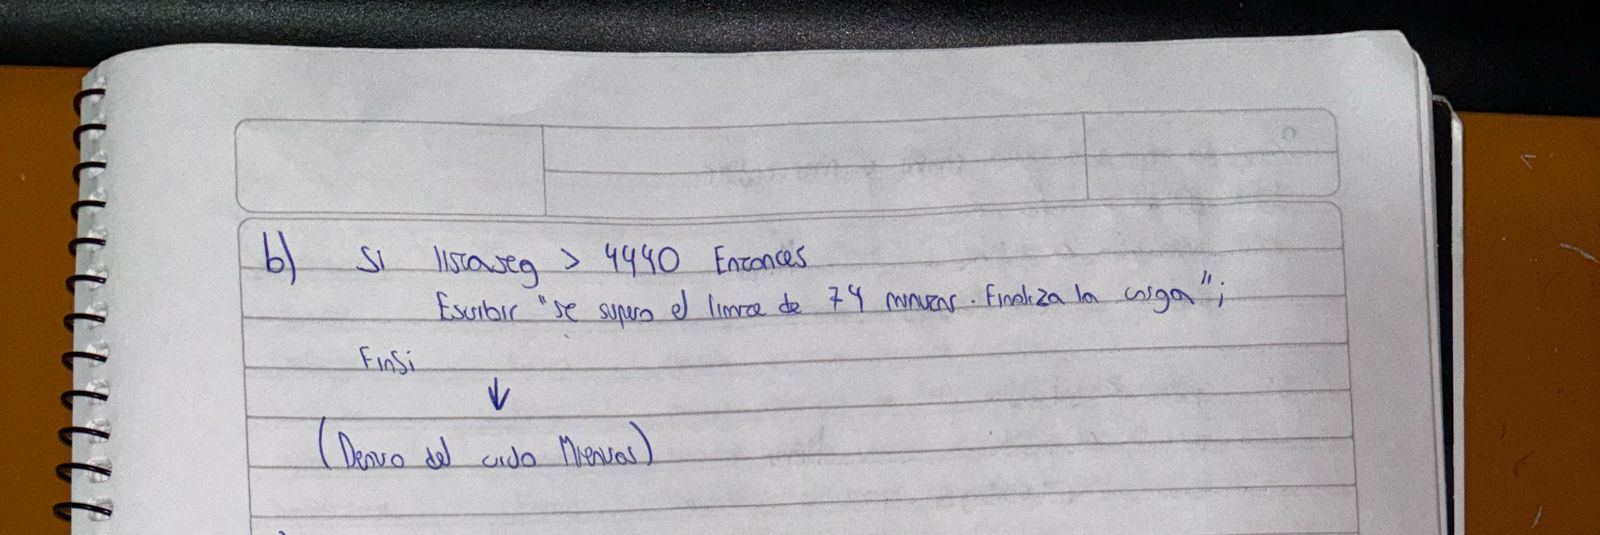 b) Si listaseg > 4440 Entonces
Escribir "se supero el limite de 74 minutos. Finaliza la carga";
FinSi
↓
(Dentro del ciclo Mientras)